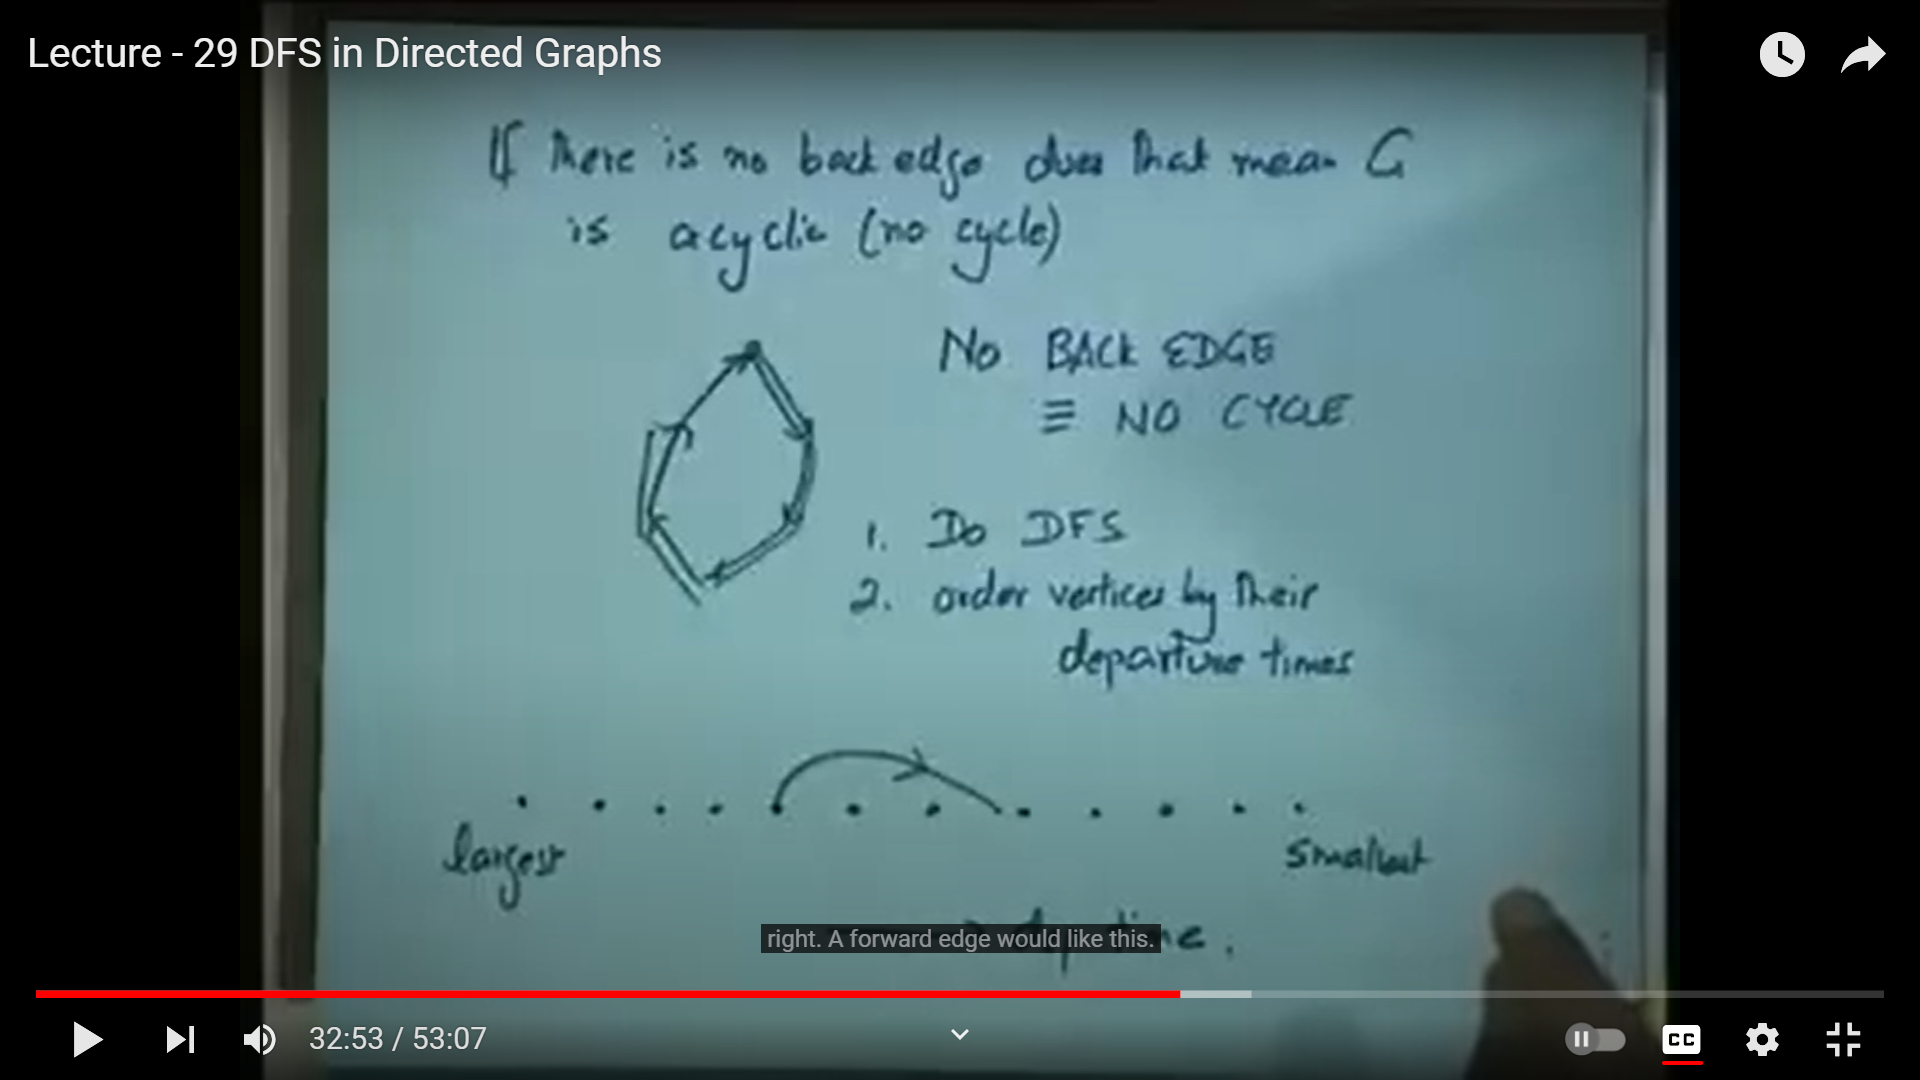 Lecture - 29 DFS in Directed Graphs
If there is no back edge does that mean G
is acyclic (no cycle)
No BACK EDGE
≡ NO CYCLE
1. Do DFS
2. order vertices by their
departure times
largest
smallest
right. A forward edge would like this.
32:53 / 53:07
CC